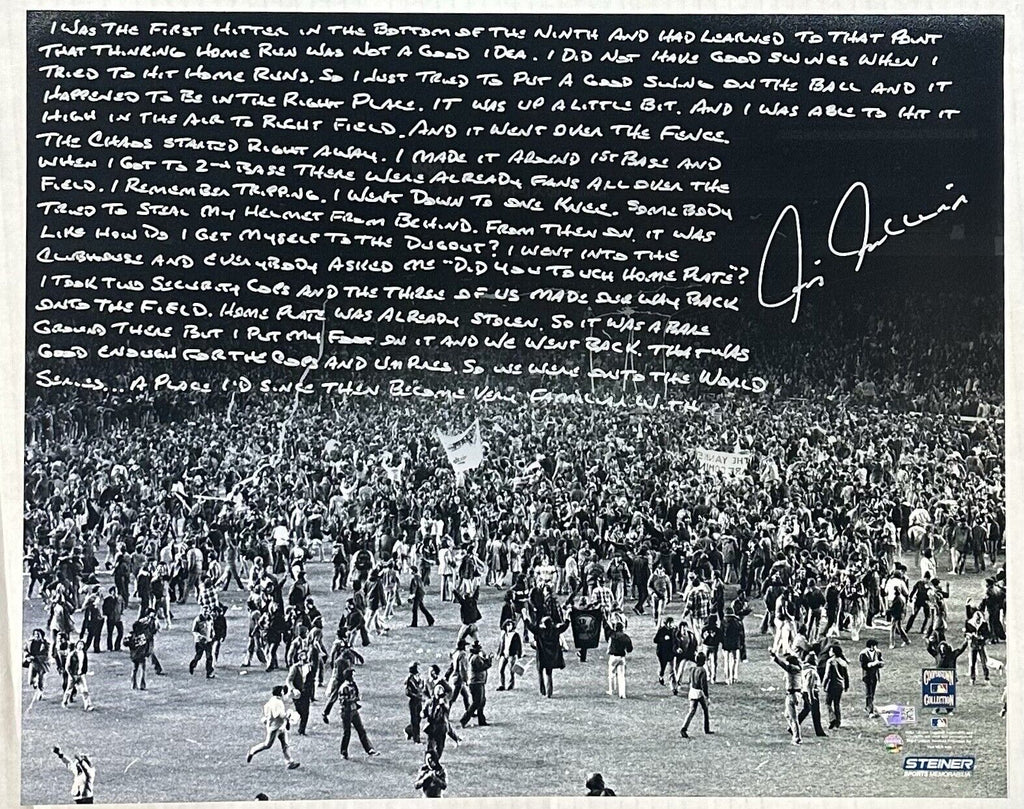 I WAS THE FIRST HITTER IN THE BOTTOM OF THE NINTH AND HAD LEARNED TO THAT POINT
THAT THINKING HOME RUN WAS NOT A GOOD IDEA. I DID NOT HAVE GOOD SWINGS WHEN I
TRIED TO HIT HOME RUNS. SO I JUST TRIED TO PUT A GOOD SWING ON THE BALL AND IT
HAPPENED TO BE IN THE RIGHT PLACE. IT WAS UP A LITTLE BIT. AND I WAS ABLE TO HIT IT
HIGH IN THE AIR TO RIGHT FIELD. AND IT WENT OVER THE FENCE.
THE CHAOS STARTED RIGHT AWAY. I MADE IT AROUND 1ST BASE AND
WHEN I GOT TO 2ND BASE THERE WERE ALREADY FANS ALL OVER THE
FIELD. I REMEMBER TRIPPING. I WENT DOWN TO ONE KNEE. SOMEBODY
TRIED TO STEAL MY HELMET FROM BEHIND. FROM THEN ON. IT WAS
LIKE HOW DO I GET MYSELF TO THE DUGOUT? I WENT INTO THE
CLUBHOUSE AND EVERYBODY ASKED ME "DID YOU TOUCH HOME PLATE"?
I TOOK TWO SECURITY COPS AND THE THREE OF US MADE OUR WAY BACK
ONTO THE FIELD. HOME PLATE WAS ALREADY STOLEN. SO IT WAS A BARE
GROUND THERE BUT I PUT MY FOOT ON IT AND WE WENT BACK. THAT WAS
GOOD ENOUGH FOR THE COPS AND UMPIRES. SO WE WERE ONTO THE WORLD
SERIES... A PLACE I'D SINCE THEN BECOME VERY FAMILIAR WITH
THE YANKS
COOPERSTOWN
COLLECTION
STEINER
SPORTS MEMORABILIA